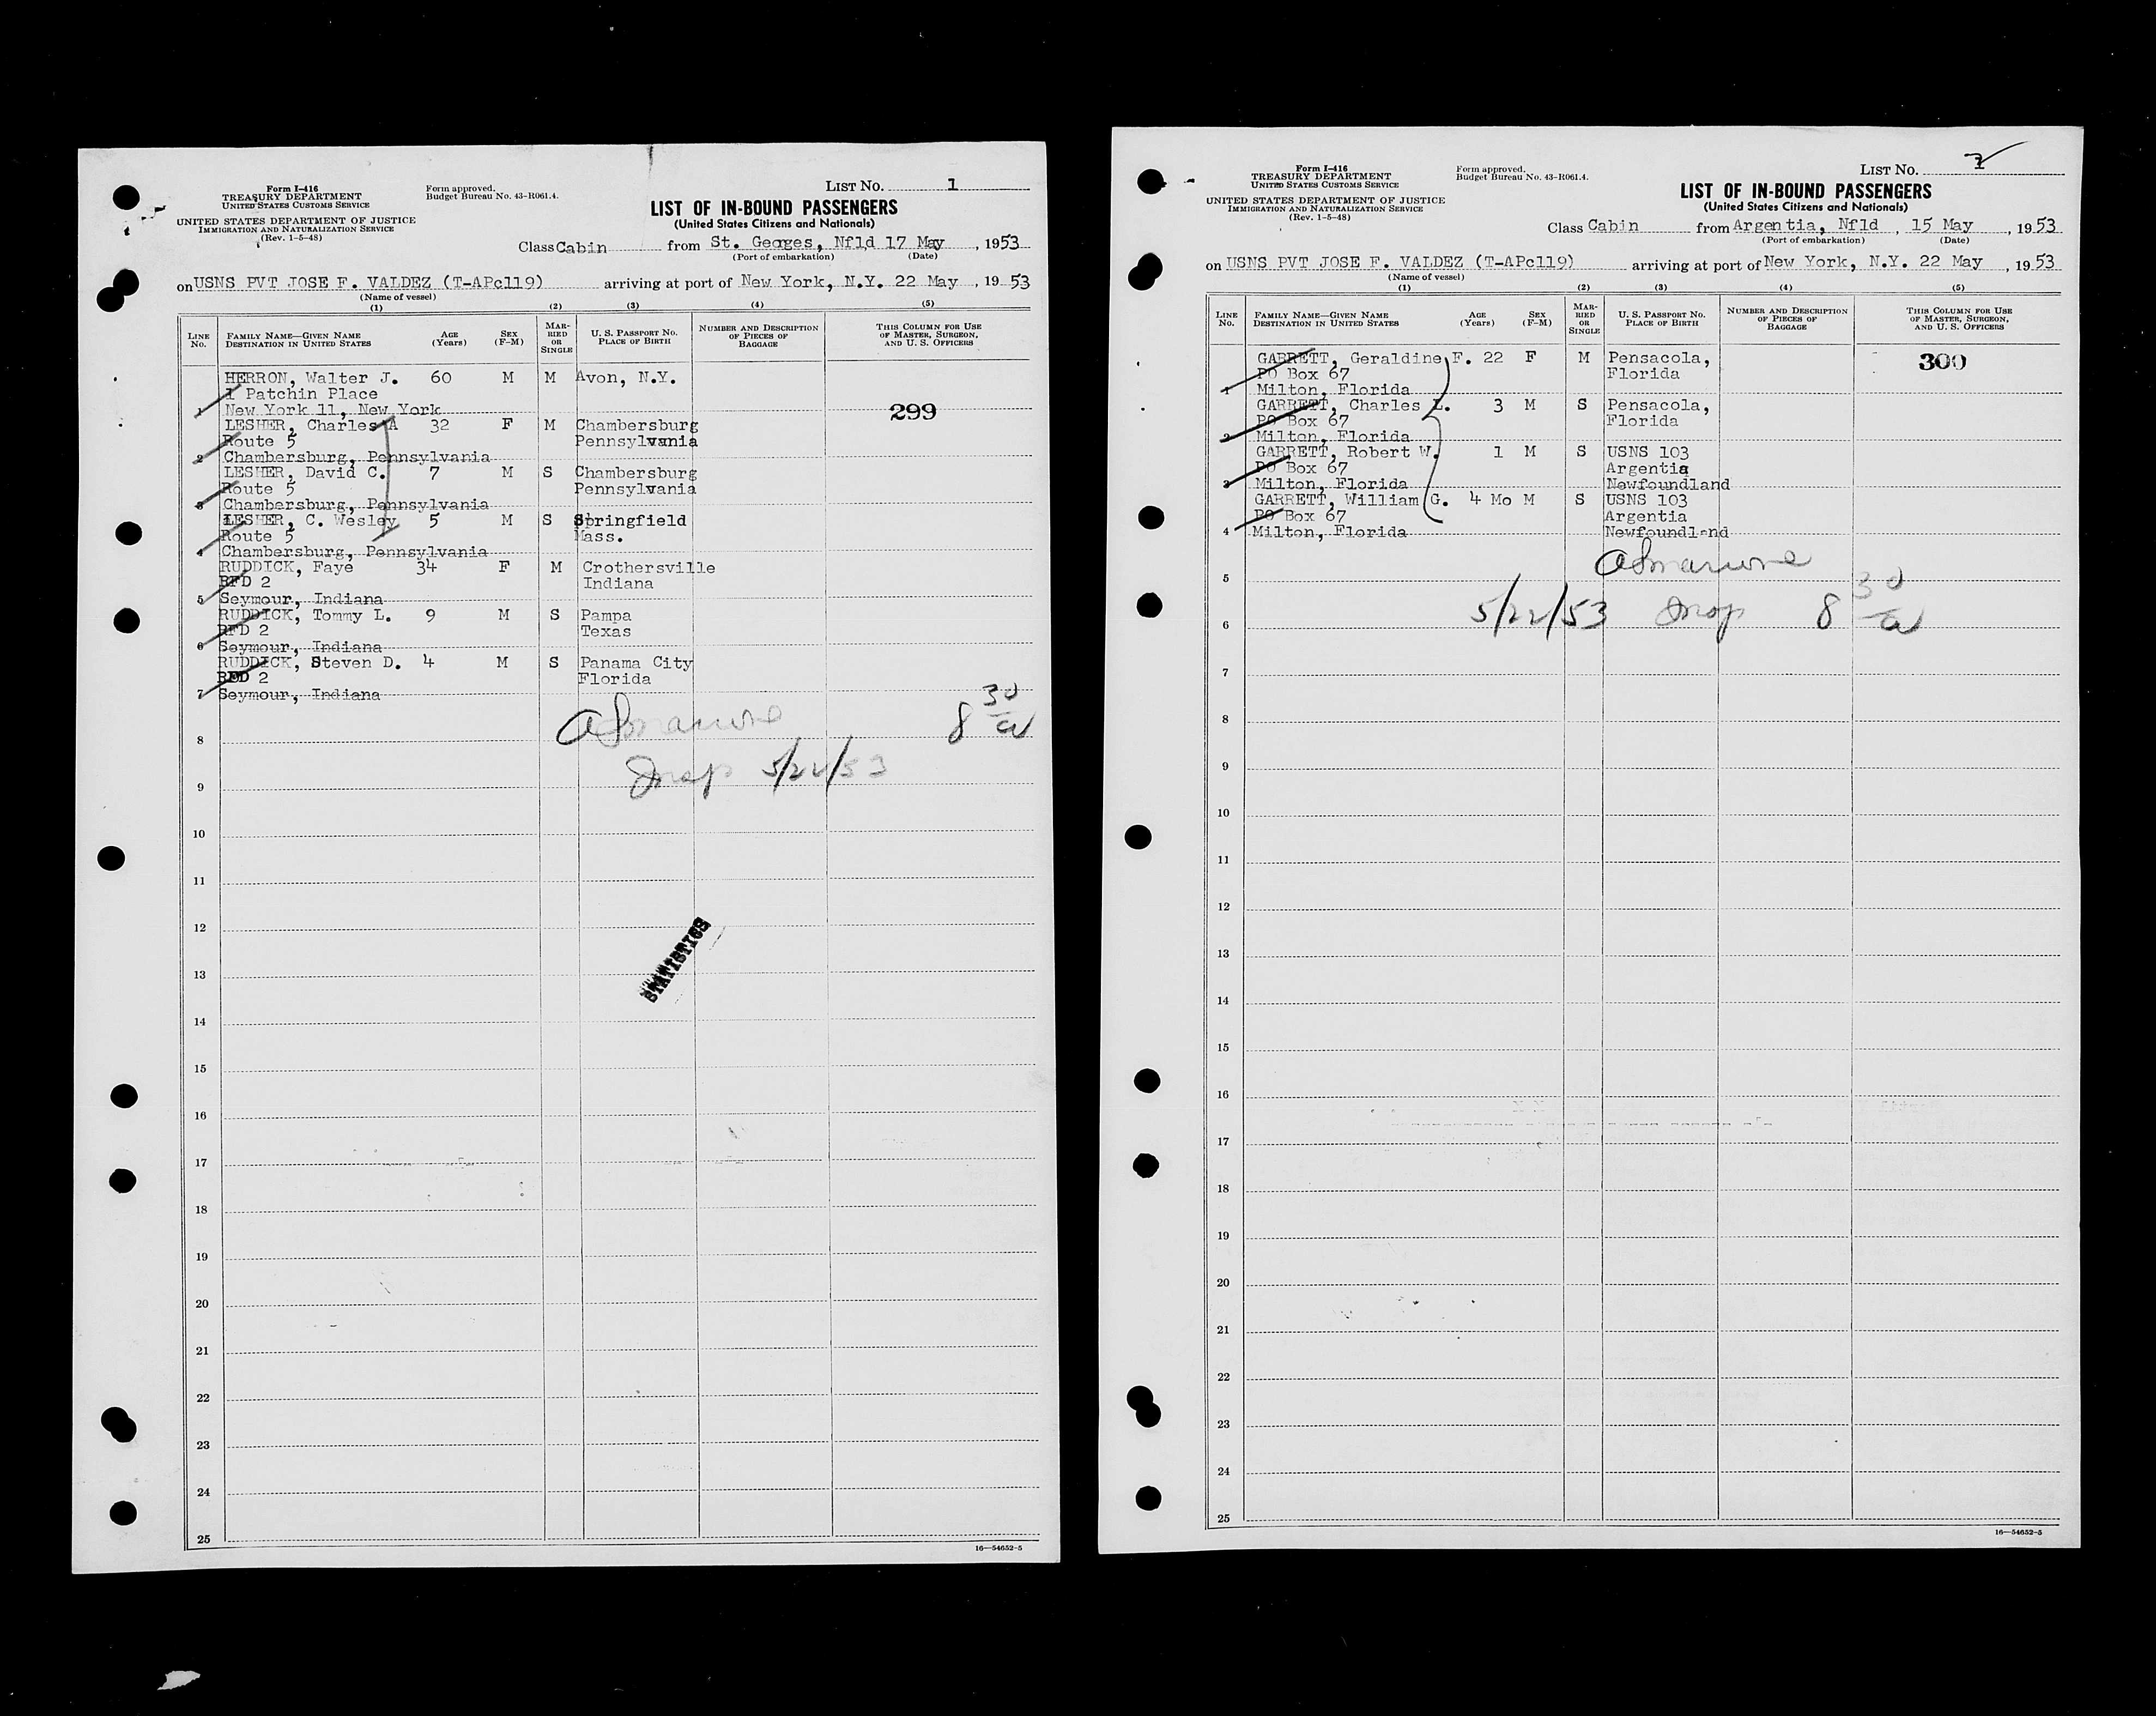 Form I-416
TREASURY DEPARTMENT
UNITED STATES CUSTOMS SERVICE
UNITED STATES DEPARTMENT OF JUSTICE
IMMIGRATION AND NATURALIZATION SERVICE
(Rev. 1-5-48)
Form approved.
Budget Bureau No. 43-R061.4.
LIST NO. 1
LIST OF IN-BOUND PASSENGERS
(United States Citizens and Nationals)
Class Cabin from St. Georges, Nfld 17 May, 1953
(Port of embarkation) (Date)
on USNS PVT JOSE F. VALDEZ (T-APc119) arriving at port of New York, N.Y. 22 May, 1953
(Name of vessel)
(1) (2) (3) (4) (5)
LINE NO. FAMILY NAME—GIVEN NAME DESTINATION IN UNITED STATES AGE (Years) SEX (F-M) MARRIED OR SINGLE U. S. PASSPORT NO. PLACE OF BIRTH NUMBER AND DESCRIPTION OF PIECES OF BAGGAGE THIS COLUMN FOR USE OF MASTER, SURGEON, AND U. S. OFFICERS
HERRON, Walter J. 60 M M Avon, N.Y.
1 Patchin Place
1 New York 11, New York 299
LESHER, Charles A 32 F M Chambersburg
Route 5 Pennsylvania
2 Chambersburg, Pennsylvania
LESHER, David C. 7 M S Chambersburg
Route 5 Pennsylvania
3 Chambersburg, Pennsylvania
LESHER, C. Wesley 5 M S Springfield
Route 5 Mass.
4 Chambersburg, Pennsylvania
RUDDICK, Faye 34 F M Crothersville
RFD 2 Indiana
5 Seymour, Indiana
RUDDICK, Tommy L. 9 M S Pampa
RFD 2 Texas
6 Seymour, Indiana
RUDDICK, Steven D. 4 M S Panama City
RFD 2 Florida
7 Seymour, Indiana
8 8 30/a
9 Insp 5/22/53
10
11
12
STATISTICS
13
14
15
16
17
18
19
20
21
22
23
24
25
16—54652-5
Form I-416
TREASURY DEPARTMENT
UNITED STATES CUSTOMS SERVICE
UNITED STATES DEPARTMENT OF JUSTICE
IMMIGRATION AND NATURALIZATION SERVICE
(Rev. 1-5-48)
Form approved.
Budget Bureau No. 43-R061.4.
LIST NO. 2
LIST OF IN-BOUND PASSENGERS
(United States Citizens and Nationals)
Class Cabin from Argentia, Nfld, 15 May, 1953
(Port of embarkation) (Date)
on USNS PVT JOSE F. VALDEZ (T-APc119) arriving at port of New York, N.Y. 22 May, 1953
(Name of vessel)
(1) (2) (3) (4) (5)
LINE NO. FAMILY NAME—GIVEN NAME DESTINATION IN UNITED STATES AGE (Years) SEX (F-M) MARRIED OR SINGLE U. S. PASSPORT NO. PLACE OF BIRTH NUMBER AND DESCRIPTION OF PIECES OF BAGGAGE THIS COLUMN FOR USE OF MASTER, SURGEON, AND U. S. OFFICERS
GARRETT, Geraldine F. 22 F M Pensacola, 300
PO Box 67 Florida
1 Milton, Florida
GARRETT, Charles L. 3 M S Pensacola,
PO Box 67 Florida
2 Milton, Florida
GARRETT, Robert W. 1 M S USNS 103
PO Box 67 Argentia
3 Milton, Florida Newfoundland
GARRETT, William G. 4 Mo M S USNS 103
PO Box 67 Argentia
4 Milton, Florida Newfoundland
5
6 5/22/53 Insp 8 30/a
7
8
9
10
11
12
13
14
15
16
17
18
19
20
21
22
23
24
25
16—54652-5